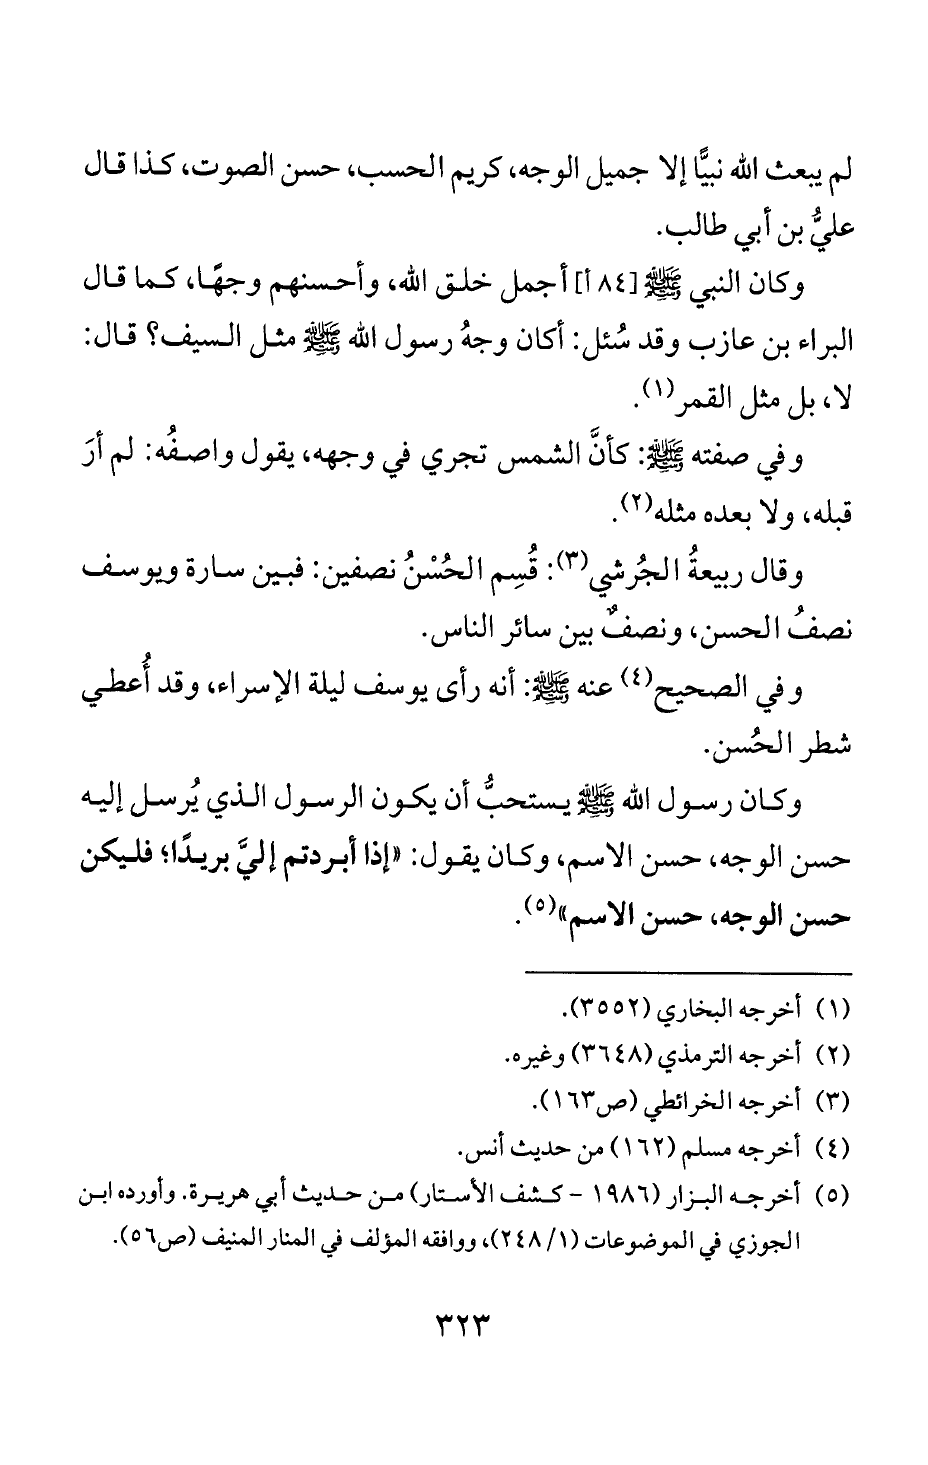 لم يبعث الله نبيًّا إلا جميل الوجه، كريم الحسب، حسن الصوت، كذا قال
عليُّ بن أبي طالب.
وكان النبي ﷺ [٨٤ أ] أجمل خلق الله، وأحسنهم وجهًا، كما قال
البراء بن عازب وقد سُئل: أكان وجهُ رسول الله ﷺ مثل السيف؟ قال:
لا، بل مثل القمر(١).
وفي صفته ﷺ: كأنَّ الشمس تجري في وجهه، يقول واصفُه: لم أرَ
قبله، ولا بعده مثله(٢).
وقال ربيعةُ الجُرشي(٣): قُسِم الحُسْنُ نصفين: فبين سارة ويوسف
نصفُ الحسن، ونصفٌ بين سائر الناس.
وفي الصحيح(٤) عنه ﷺ: أنه رأى يوسف ليلة الإسراء، وقد أُعطي
شطر الحُسن.
وكان رسول الله ﷺ يستحبُّ أن يكون الرسول الذي يُرسل إليه
حسن الوجه، حسن الاسم، وكان يقول: «إذا أبردتم إليَّ بريدًا؛ فليكن
حسن الوجه، حسن الاسم»(٥).
(١) أخرجه البخاري (٣٥٥٢).
(٢) أخرجه الترمذي (٣٦٤٨) وغيره.
(٣) أخرجه الخرائطي (ص١٦٣).
(٤) أخرجه مسلم (١٦٢) من حديث أنس.
(٥) أخرجه البزار (١٩٨٦ - كشف الأستار) من حديث أبي هريرة. وأورده ابن
الجوزي في الموضوعات (١/ ٢٤٨)، ووافقه المؤلف في المنار المنيف (ص٥٦).
٣٢٣